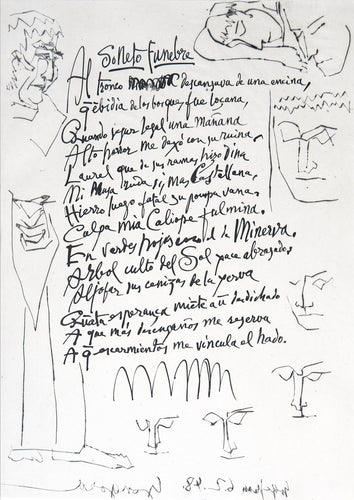 Soneto Funebre
Al tronco descansava de una encina,
q̃ ebidia de los bosques fue loçana,
Quando segur legal una mañana
Alto horror me dexó con su ruina.
Laurel que de sus ramas hizo dina
Mi lira, ruda si, Mas Castellana,
Hierro luego fatal su pompa vana,
Culpa mia Caliope fulmina.
En verdes hojas cano el de Minerva
Arbol culto del Sol yace abrazado,
Aljofar sus cenizas de la yerva
Quãta esperança miẽte a ũ desdichado
A que más desengaños me reserva
A q̃ escarmientos me vincula el hado.
Gongora